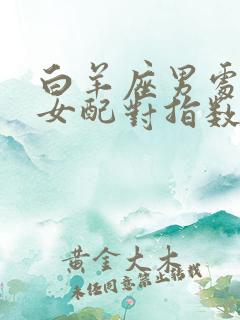 白羊座男處
女配對指數
黃金大木
未經同意禁止搭載